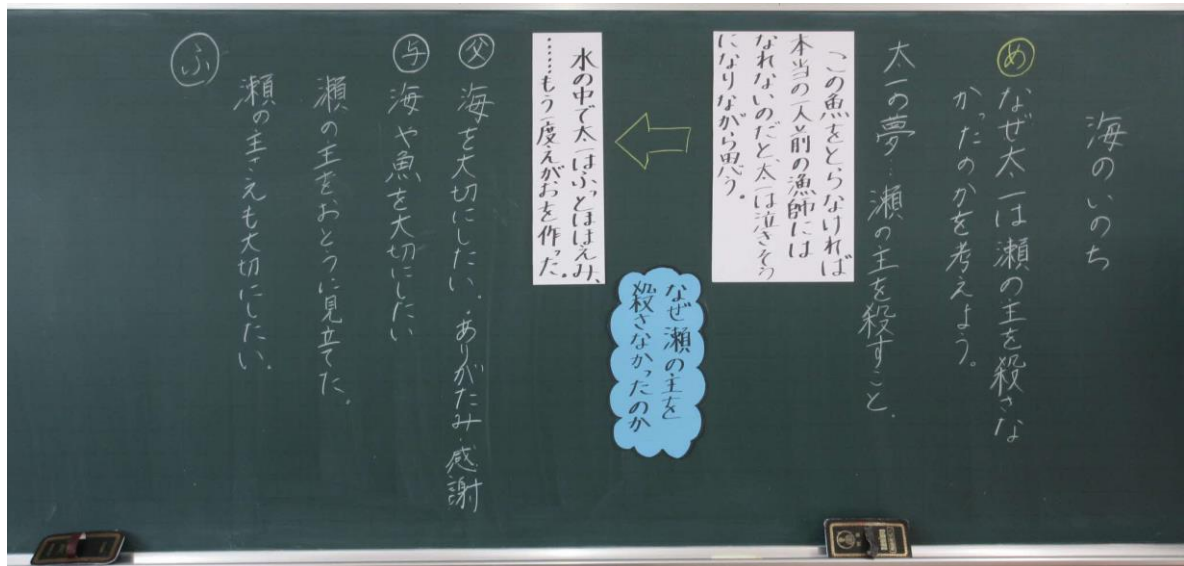 海のいのち
め
なぜ太一は瀬の主を殺さな
かったのかを考えよう。
太一の夢…瀬の主を殺すこと.
この魚をとらなければ
本当の一人前の漁師には
なれないのだと、太一は泣きそう
になりながら思う。
なぜ瀬の主を
殺さなかったのか
水の中で太一はふっとほほえみ、
……もう一度えがおを作った。
父 海を大切にしたい.ありがたみ・感謝
与 海や魚を大切にしたい
瀬の主をおとうに見立てた.
瀬の主さえも大切にしたい.
ふ